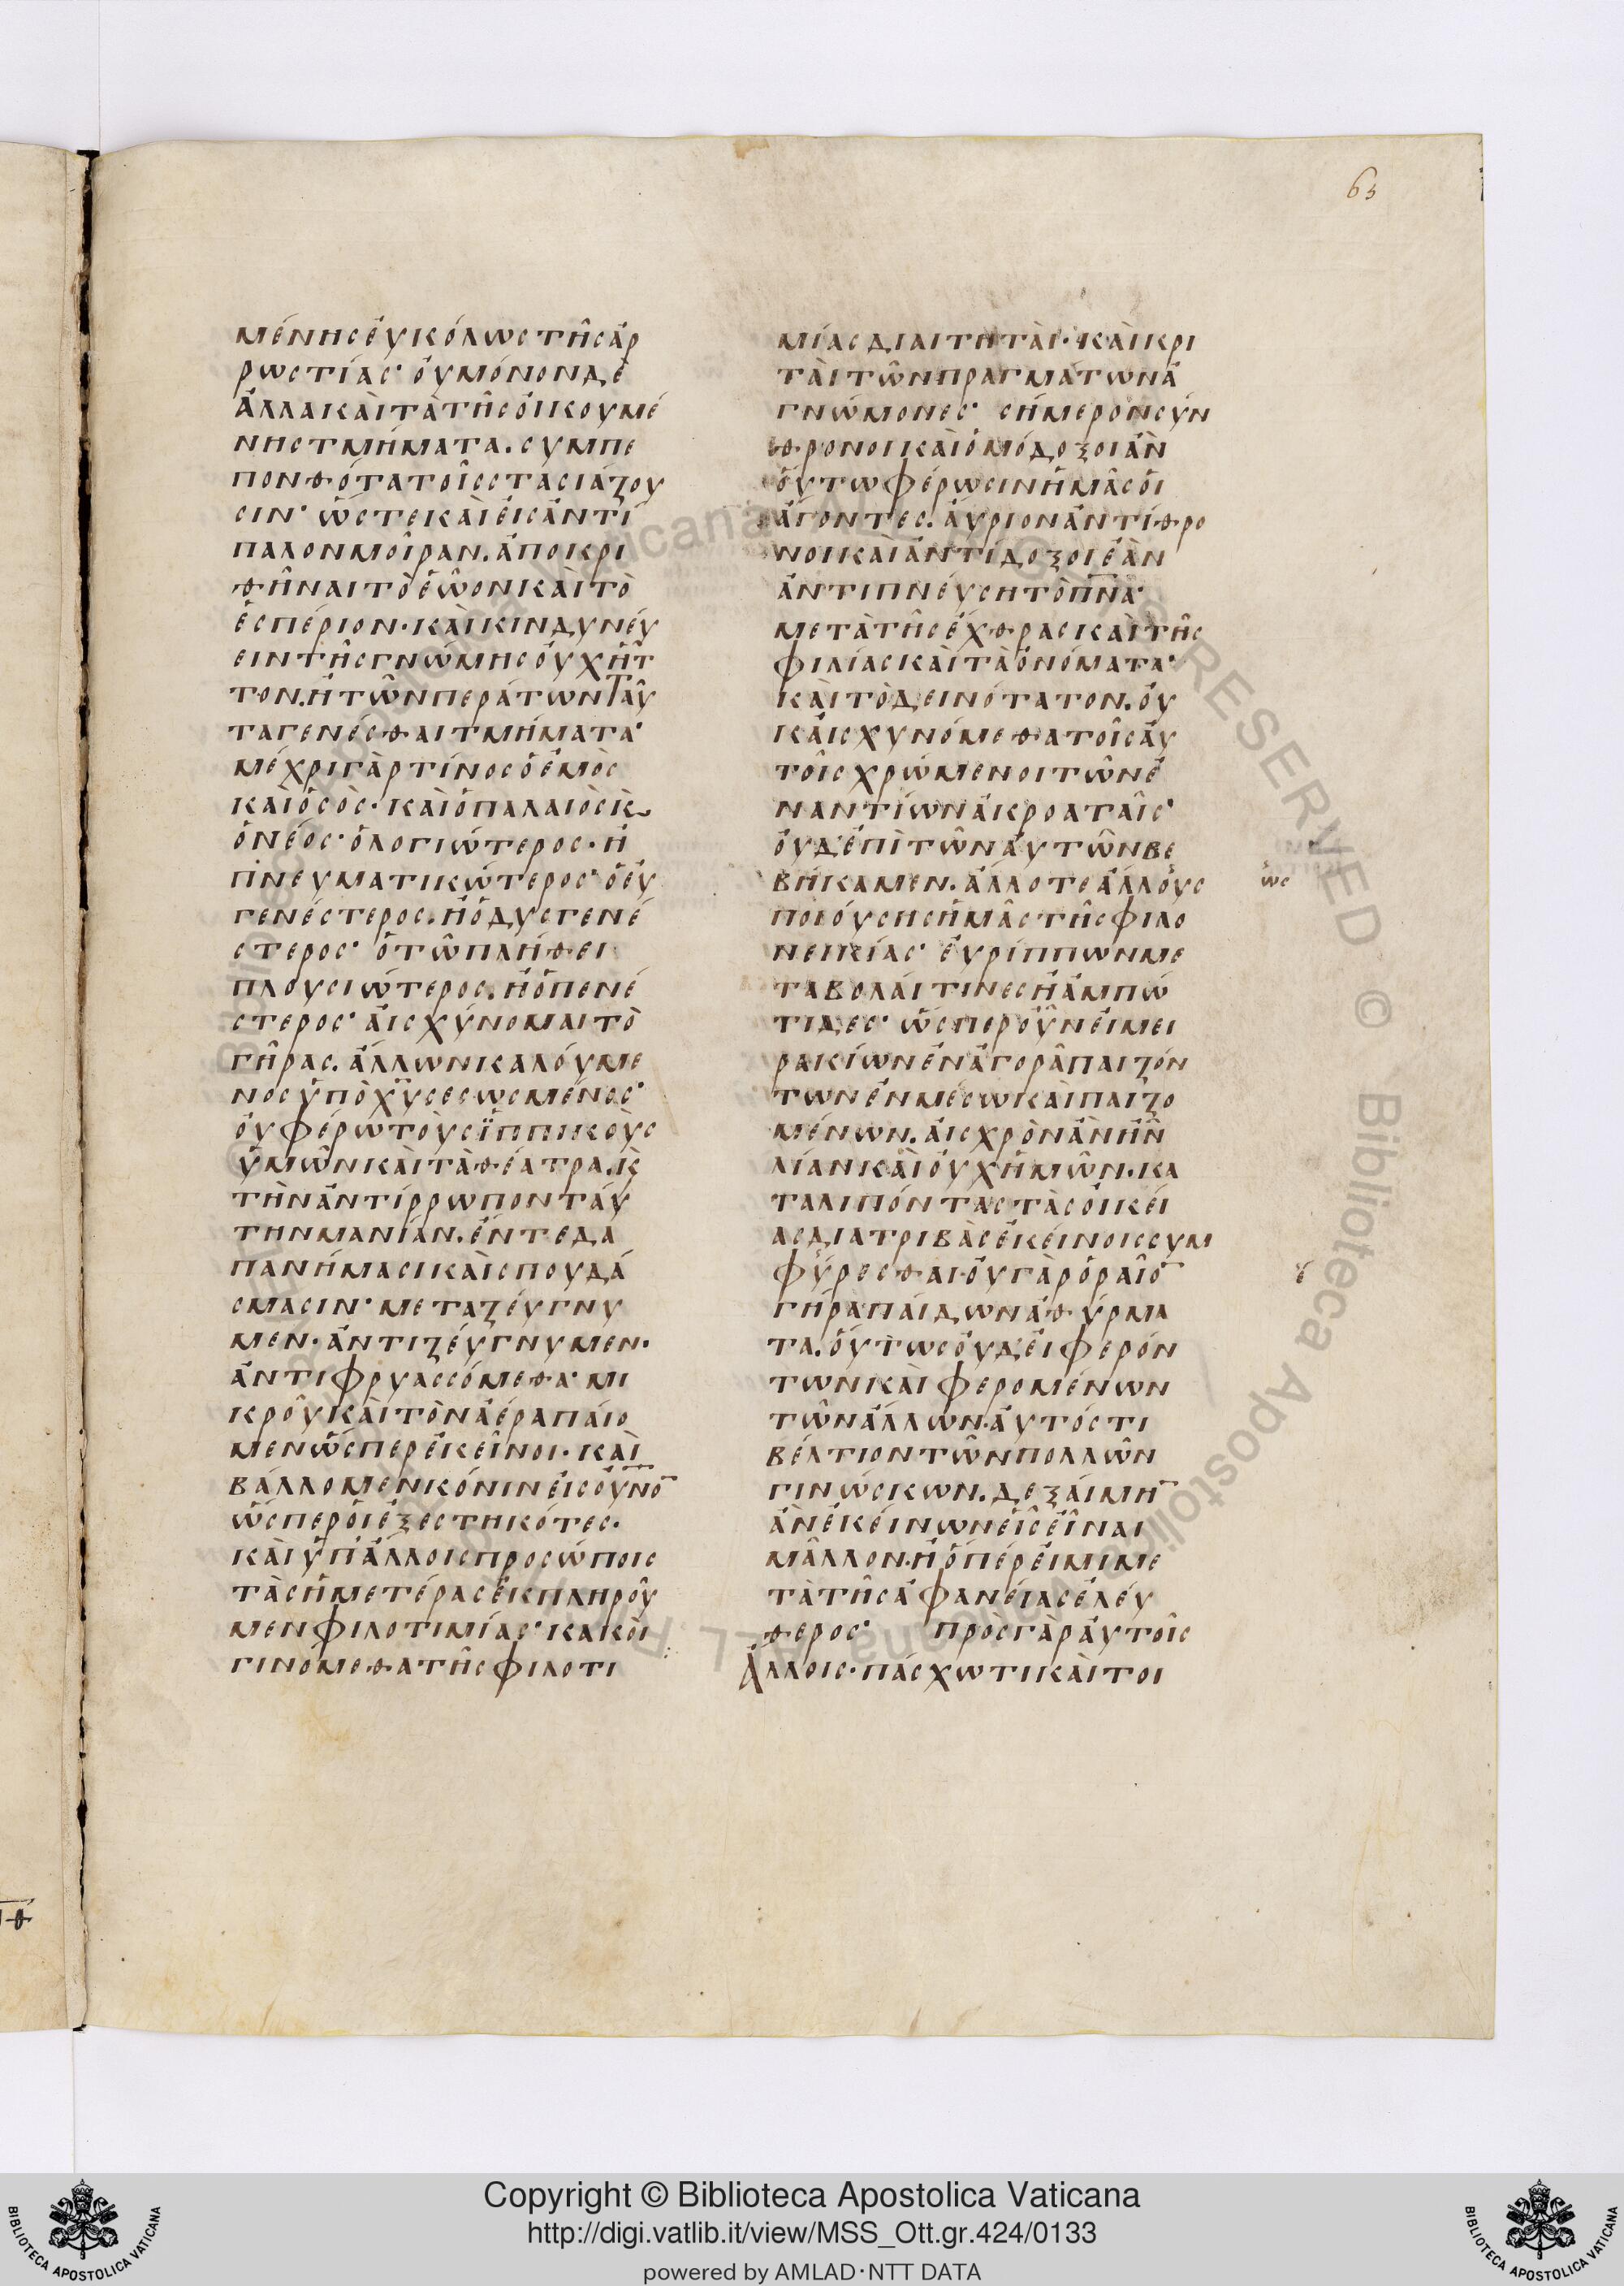 63
μένης ἐυκόλως τῆς ἀρ
ρωστίας· ὀυμόνον δὲ
ἀλλα κὰι τὰ τῆς ὀικουμέ
νης τμήματα. συμπε
πονθότα τοῖς στασιάζου
σιν· ὥστε κὰι ἐις ἀντί
παλον μοῖραν. ἀποκρι
θῆναι τὸ ἑῶον κὰι τὸ
ἑσπέριον. κὰι κινδυνέυ
ειν τῆς γνώμης ὀυχ ἧτ
τον. ἢ τῶν περάτων ταῦ
τα γενέσθαι τμήματα·
μέχρι γὰρ τίνος ὁ ἐμὸς
κὰι ὁ σὸς. κὰι ὁ παλαιὸς κ̀
ὁ νέος· ὁ λογιώτερος. ἢ
πνευματικώτερος· ὁ ἐυ
γενέστερος. ἢ ὁ δυσγενέ
στερος· ὁ τῶ πλήθει
πλουσιώτερος. ἢ ὁ πενέ
στερος· ἀισχύνομαι τὸ
γῆρας. ἄλλων καλόυμε
νος ὑπὸ χ̅υ̅ σεσωσμένος·
ὀυ φέρω τοὺς ἱππικοὺς
ὑμῶν κὰι τὰ θέατρα. κ̀
τὴν ἀντίρρωπον τάυ
την μανίαν. ἔν τε δα
πανήμασι κὰι σπουδά
σμασιν· μεταζέυγνυ
μεν. ἀντιζέυγνυμεν.
ἀντιφρυασσόμεθα· μι
κροῦ κὰι τὸν ἀέρα πάιο
μεν ὥσπερ ἐκεῖνοι. κὰι
βάλλομεν κόνιν ἐις ὀυνο̅
ὥσπερ ὁι ἐξεστηκότες.
κὰι ὑπ' ἄλλοις προσώποις
τὰς ἡμετέρας ἐκπληροῦ
μεν φιλοτιμίας· κακοὶ
γινομεθα τῆς φιλοτι
μίας διαιτηταὶ. κὰι κρι
τὰι τῶν πραγμάτων ἀ
γνώμονες· σήμερον σύν
θρονοι κὰι ὁμόδοξοι ἂν
ὅυτω φέρωσιν ἡμᾶς ὁι
ἄγοντες. ἄυριον ἀντίθρο
νοι κὰι ἀντίδοξοι ἐὰν
ἀντιπνέυση τὸ π̅ν̅α̅·
μετὰ τῆς ἔχθρας κὰι τῆς
φιλίας κὰι τὰ ὀνόματα·
κὰι τὸ δεινότατον. ὀυ
κ ἀισχυνόμεθα τοῖς ἀυ
τοῖς χρώμενοι τῶν ἐ
ναντίων ἀκροαταῖς·
ὀυδ' ἐπὶ τῶν ἀυτῶν βε
βήκαμεν. ἄλλοτε ἄλλους
ὡς
ποιόυσης ἡμᾶς τῆς φιλο
νεικίας· ἐυρίππων με
ταβολάι τινες ἢ ἀμπώ
τιδες· ὥσπερ οὖν ἐι μει
ρακίων ἐν ἀγορᾶ παιζόν
των ἐν μέσω κὰι παιζο
μένων. ἀισχρὸν ἂν ἦν
λίαν κὰι ὀυχ ἡμῶν. κα
ταλιπόντας τὰς ὀικεί
ας διατριβὰς ἐκέινοις συμ
φύρεσθαι. ὀυ γὰρ ὁραῖο̅
γήρα παίδων ἀθύρμα
τα. ὅυτως ὀυδ' ἐι φερόν
των κὰι φερομένων
τῶν ἄλλων. ἀυτός τι
βέλτιον τῶν πολλῶν
γινώσκων. δεξάιμη̅
ἂν ἐκέινων ἐῖς εἶναι
μᾶλλον. ἢ ὅπερ ἐιμι με
τὰ τῆς ἀφανείας ἐλέυ
θερος· πρὸς γὰρ ἀυτοῖς
ἄλλοις. πάσχω τι κὰι τοι
Copyright © Biblioteca Apostolica Vaticana
http://digi.vatlib.it/view/MSS_Ott.gr.424/0133
powered by AMLAD·NTT DATA
BIBLIOTECA APOSTOLICA VATICANA
BIBLIOTECA APOSTOLICA VATICANA